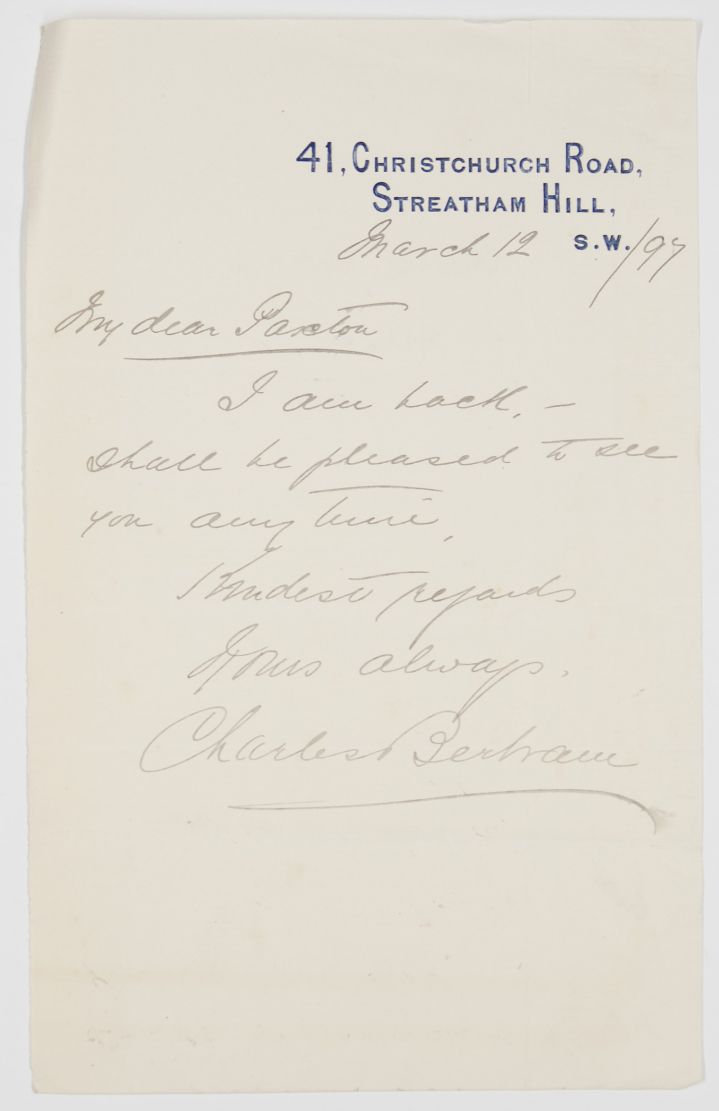 41, Christchurch Road,
Streatham Hill,
S.W.
March 12 /97
My dear Paxton
I am back, –
shall be pleased to see
you any time,
Kindest regards
Yours always.
Charles Bertram